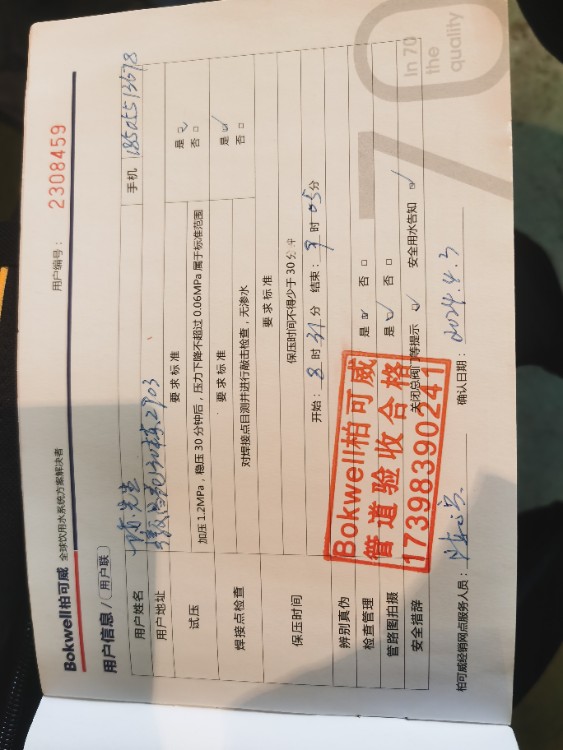 Bokwell柏可威 全球饮用水系统方案解决者
用户编号： 2308459
用户信息/用户联
用户姓名 陈先生 手机 18505513678
用户地址 30栋2903
试压 要求标准
加压1.2MPa，稳压30分钟后，压力下降不超过0.06MPa属于标准范围 是☑ 否□
焊接点检查 要求标准
对焊接点目测并进行敲击检查，无渗水 是☑ 否□
保压时间 要求标准
保压时间不得少于30分钟
开始：8时31分 结束：9时05分
辨别真伪 是☑ 否□
检查管理 是☑ 否□
管路图拍摄
安全措辞 关闭总阀门等提示 ☑ 安全用水告知 ☑
Bokwell柏可威
管道验收合格
17398390241
柏可威经销网点服务人员： 确认日期： 2024.4.3
70
In 70
the
quality